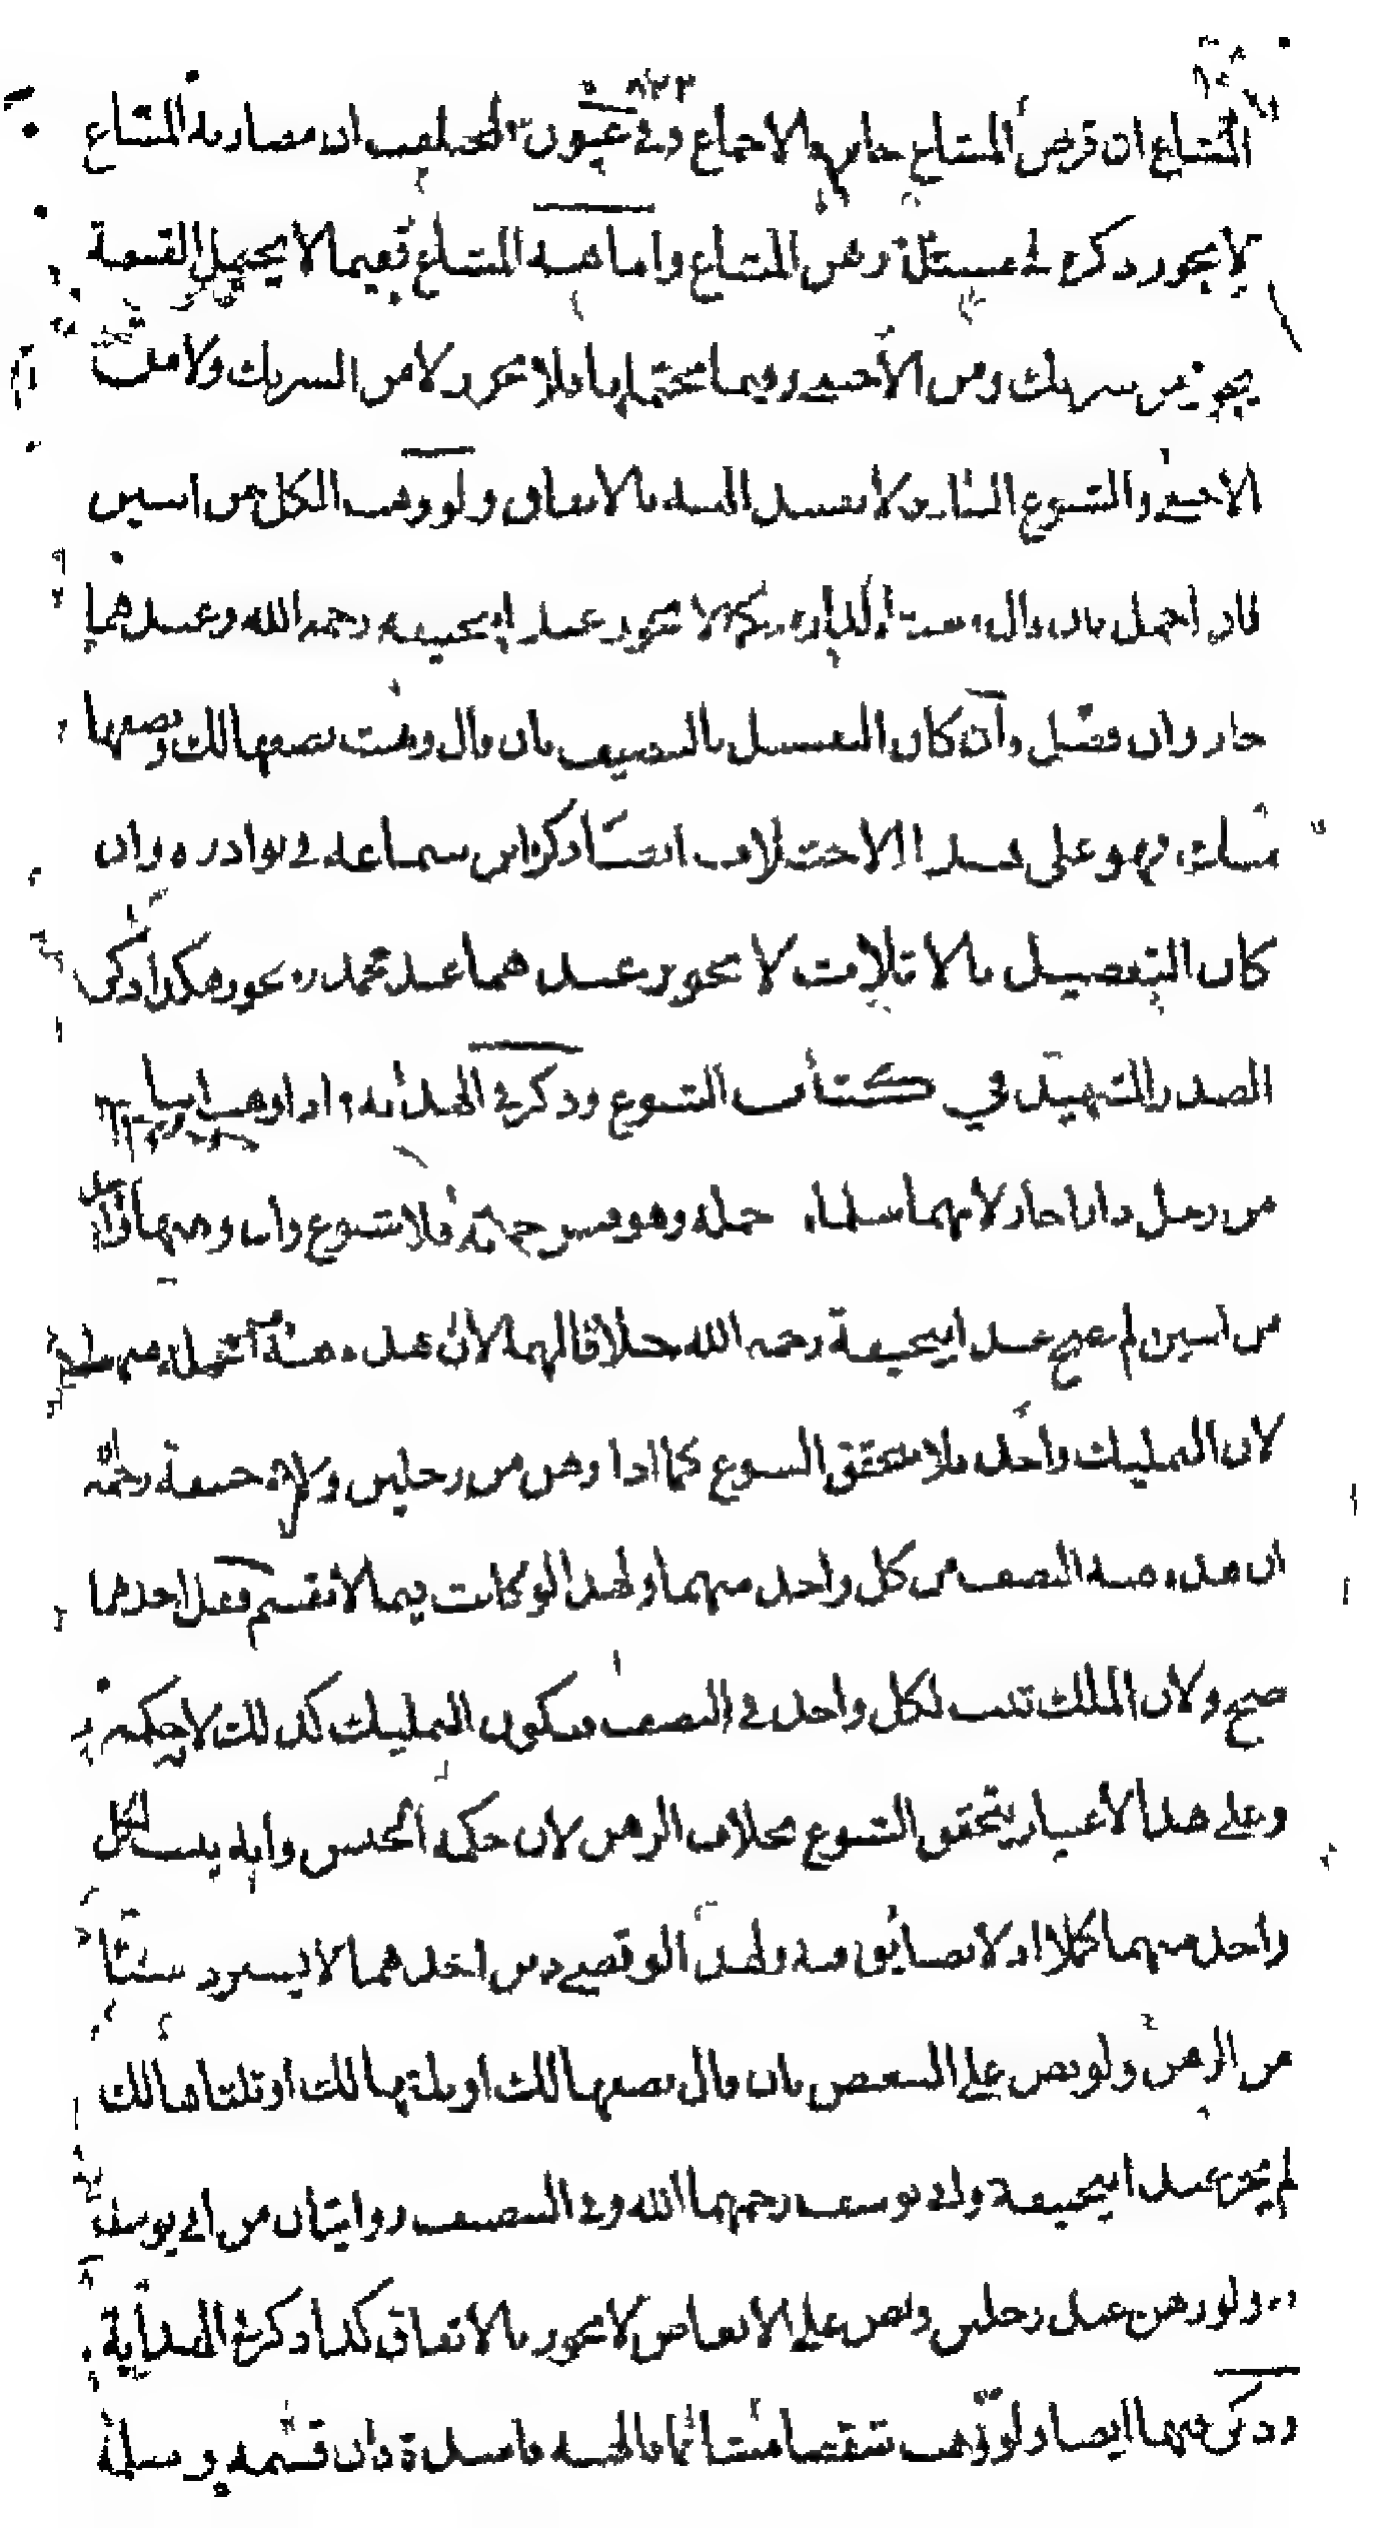 المشاع ان قرض المشاع جايز بالاجماع وفي عيون ان مضاربة المشاع
لا يجوز ذكره في مسئلة رهن المشاع واما هبة المشاع فيما لا يحتمل القسمة
يجوز من شريك ومن الأجنبي وفيما يحتملها فلا يجوز لا من الشريك ولا من
الاجنبي والشيوع الطارى لا يفسد الهبة بالاتفاق ولو وهب الكل من اثنين
فان اجمل بان قال وهبت الدار منكما لا يجوز عند ابيحنيفة رحمه الله وعندهما
جاز وان فصّل وان كان التفصيل بالتنصيف بان قال وهبت نصفها لك ونصفها
فهو على هذا الاختلاف ايضا ذكر ابن سماعة في نوادره وان
كان التفصيل بالاثلاث لا يجوز عندهما عند محمد ره يجوز هكذا ذكر
الصدر الشهيد في كتاب الشيوع وذكر في الهداية واذا وهب اثنان
من رجل دارا جاز لانهما سلماه جملة وهو قبض جملة فلا شيوع وان وهبها واحد
من اثنين لم يصح عند ابيحنيفة رحمه الله خلافا لهما لان هذه هبة الجملة منهما
لان التمليك واحد فلا يتحقق الشيوع كما اذا رهن من رجلين ولابي حنيفة رحمه الله
ان هذه هبة النصف من كل واحد منهما ولهذا لو كانت فيما لا تقسم فقبل احدهما
صح ولان الملك تثبت لكل واحد في النصف فيكون التمليك كذلك لانه حكمه
وعلى هذا الاعتبار يتحقق الشيوع بخلاف الرهن لان حكمه الحبس وانه يثبت لكل
واحد منهما كملا اذ لا تضايق فيه ولهذا لو قضى دين احدهما لا يسترد شيئا
من الرهن ولو نص على التبعيض بان قال نصفها لك او ثلثها لك او ثلثاها لك
لم يجز عند ابيحنيفة وابي يوسف رحمهما الله وفي التنصيف روايتان من ابي يوسف
ره ولو رهن عند رجلين ونص على الابعاض لا يجوز بالاتفاق كذا ذكر في الهداية
وذكر فيها ايضا ولو وهب شقصا مشاعا فالهبة فاسدة فان قسمه وسلمه